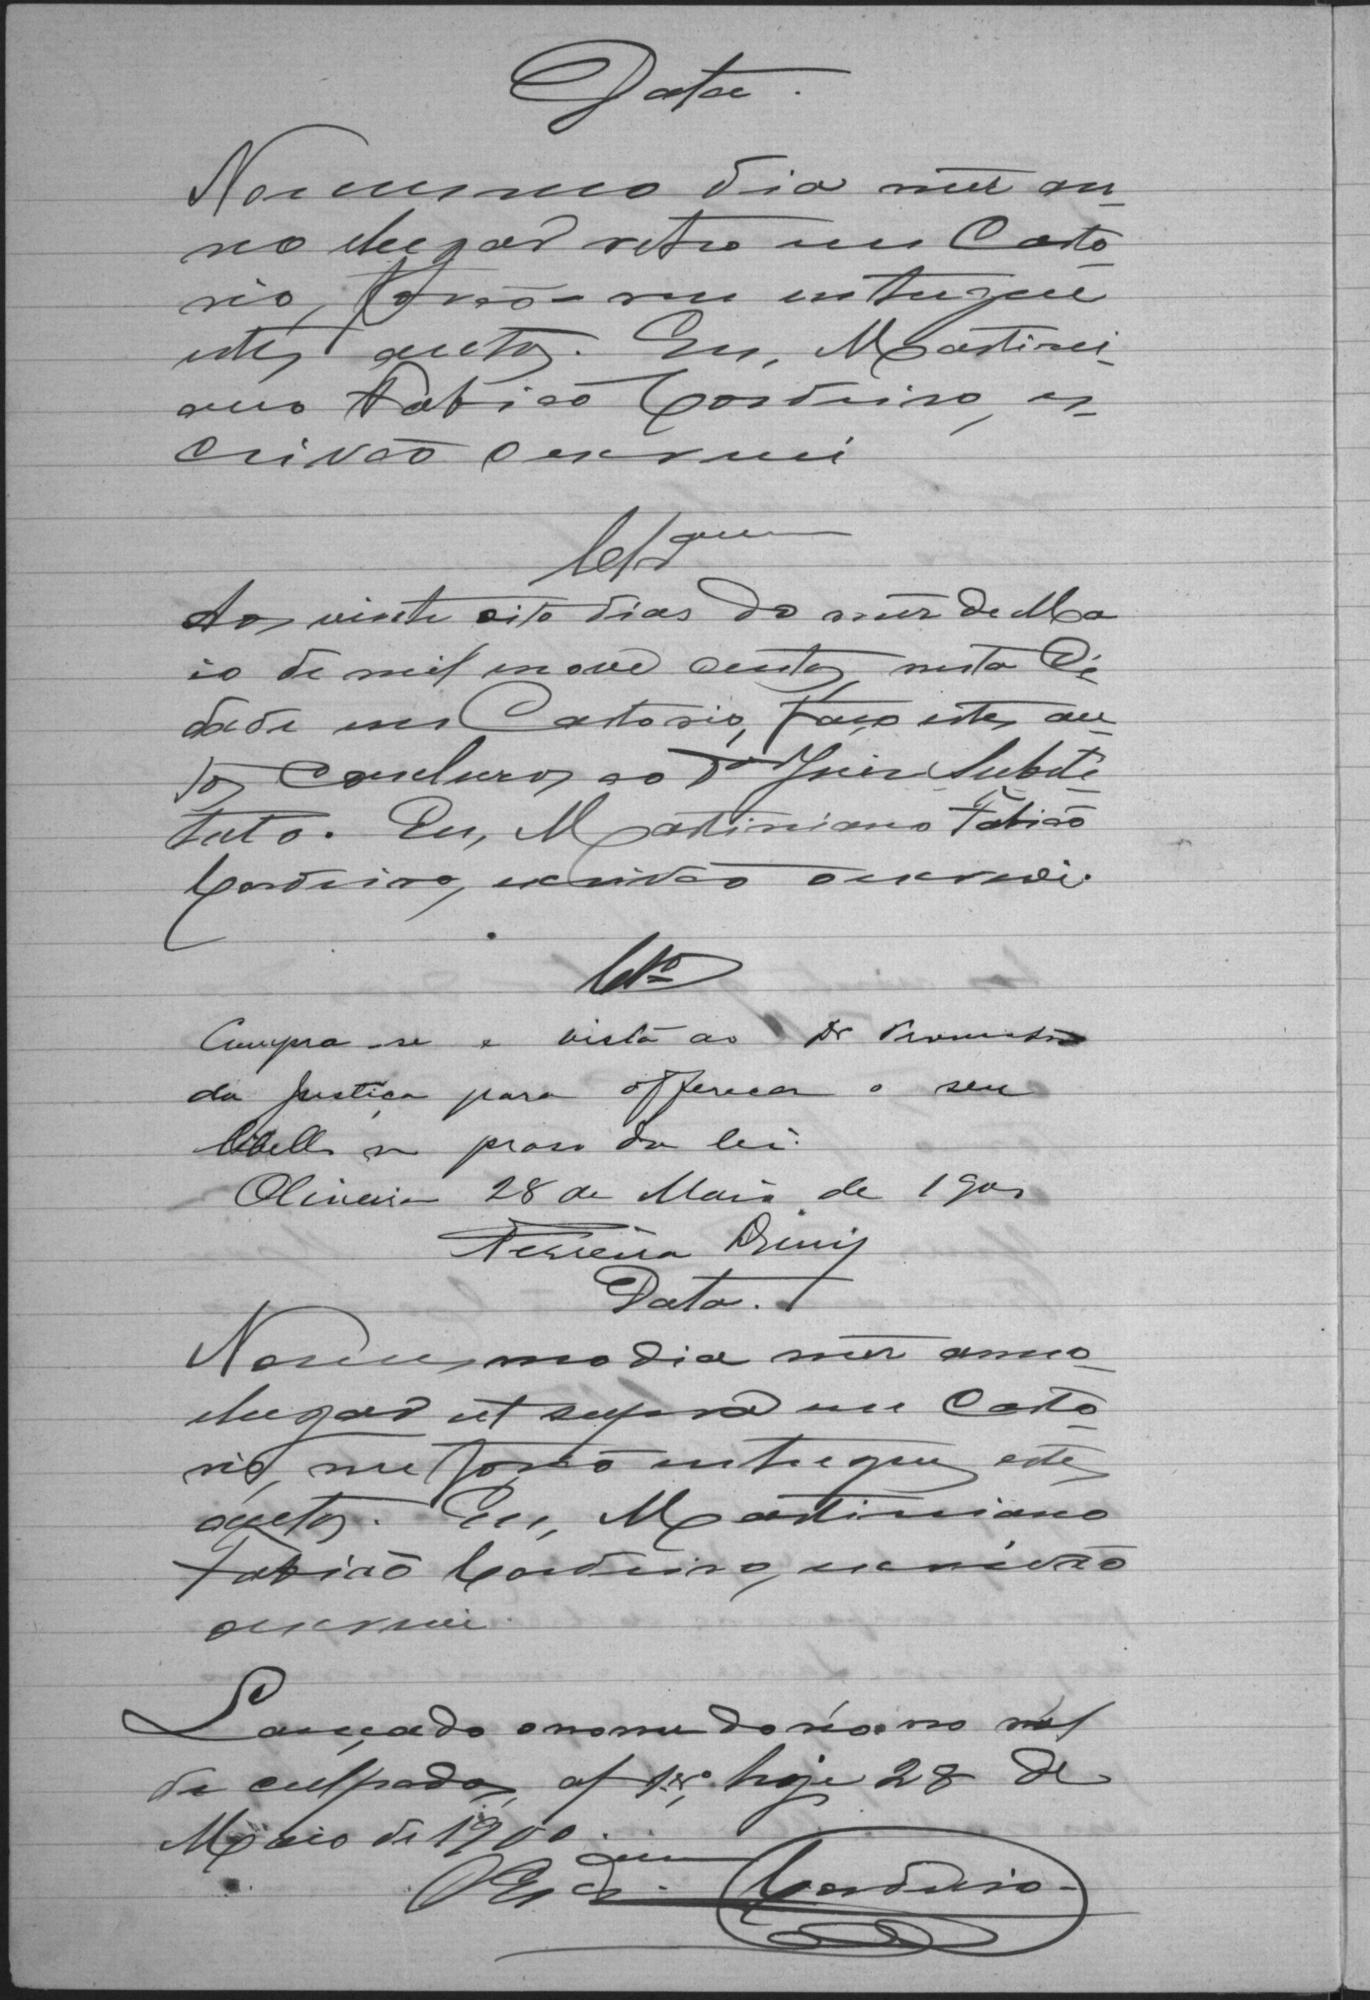 Data.
No mesmo dia mez an-
no e lugar retro em Carto-
rio, forão-me entregue
estes autos. Eu, Martini-
ano Fabião Cordeiro, es-
crivão o escrevi
Clsam
Aos vinte oito dias do mez de Ma
io de mil e nove centos, nesta Ci-
dade em Cartorio, faço estes au-
tos conclusos ao Dor Juiz Substi-
tuto. Eu, Martiniano Fabião
Cordeiro, escrivão o escrevi.
Clso
Cumpra-se e vista ao Dr Promotor
da Justiça para offerecer o seu
libello no praso da lei.
Oliveira 28 de Maio de 1900
Ferreira Diniz
Data.
No mesmo dia mez anno
e lugar ut supra em Carto-
rio, me forão entregues estes
autos. Eu, Martiniano
Fabião Cordeiro, escrivão
o escrevi.
Lançado o nome do réo no rol
de culpados, af hoje 28 de
Maio de 1900.
Cordeiro